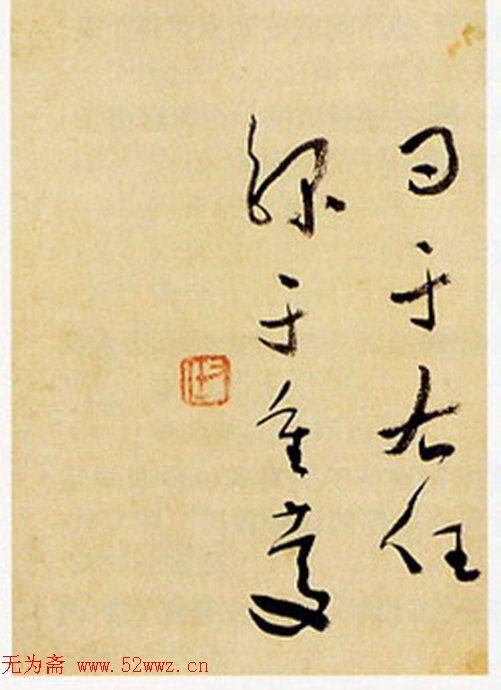 日于右任
録于重慶
无为斋 www.52wwz.cn